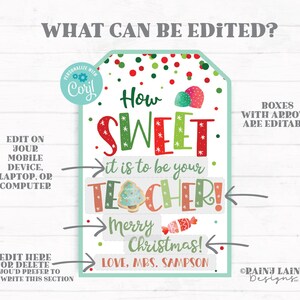 WHAT CAN BE EDITED?
PERSONALIZE WITH
Corjl
How
SWEET
it is to be your
TEACHER!
Merry
Christmas!
LOVE, MRS. SAMPSON
EDIT ON
YOUR
MOBILE
DEVICE,
LAPTOP, OR
COMPUTER
EDIT HERE
OR DELETE
WOULD PREFER TO
WRITE THIS SECTION
BOXES
WITH ARROW
ARE EDITABL
©RAINJ LAIN
Designs